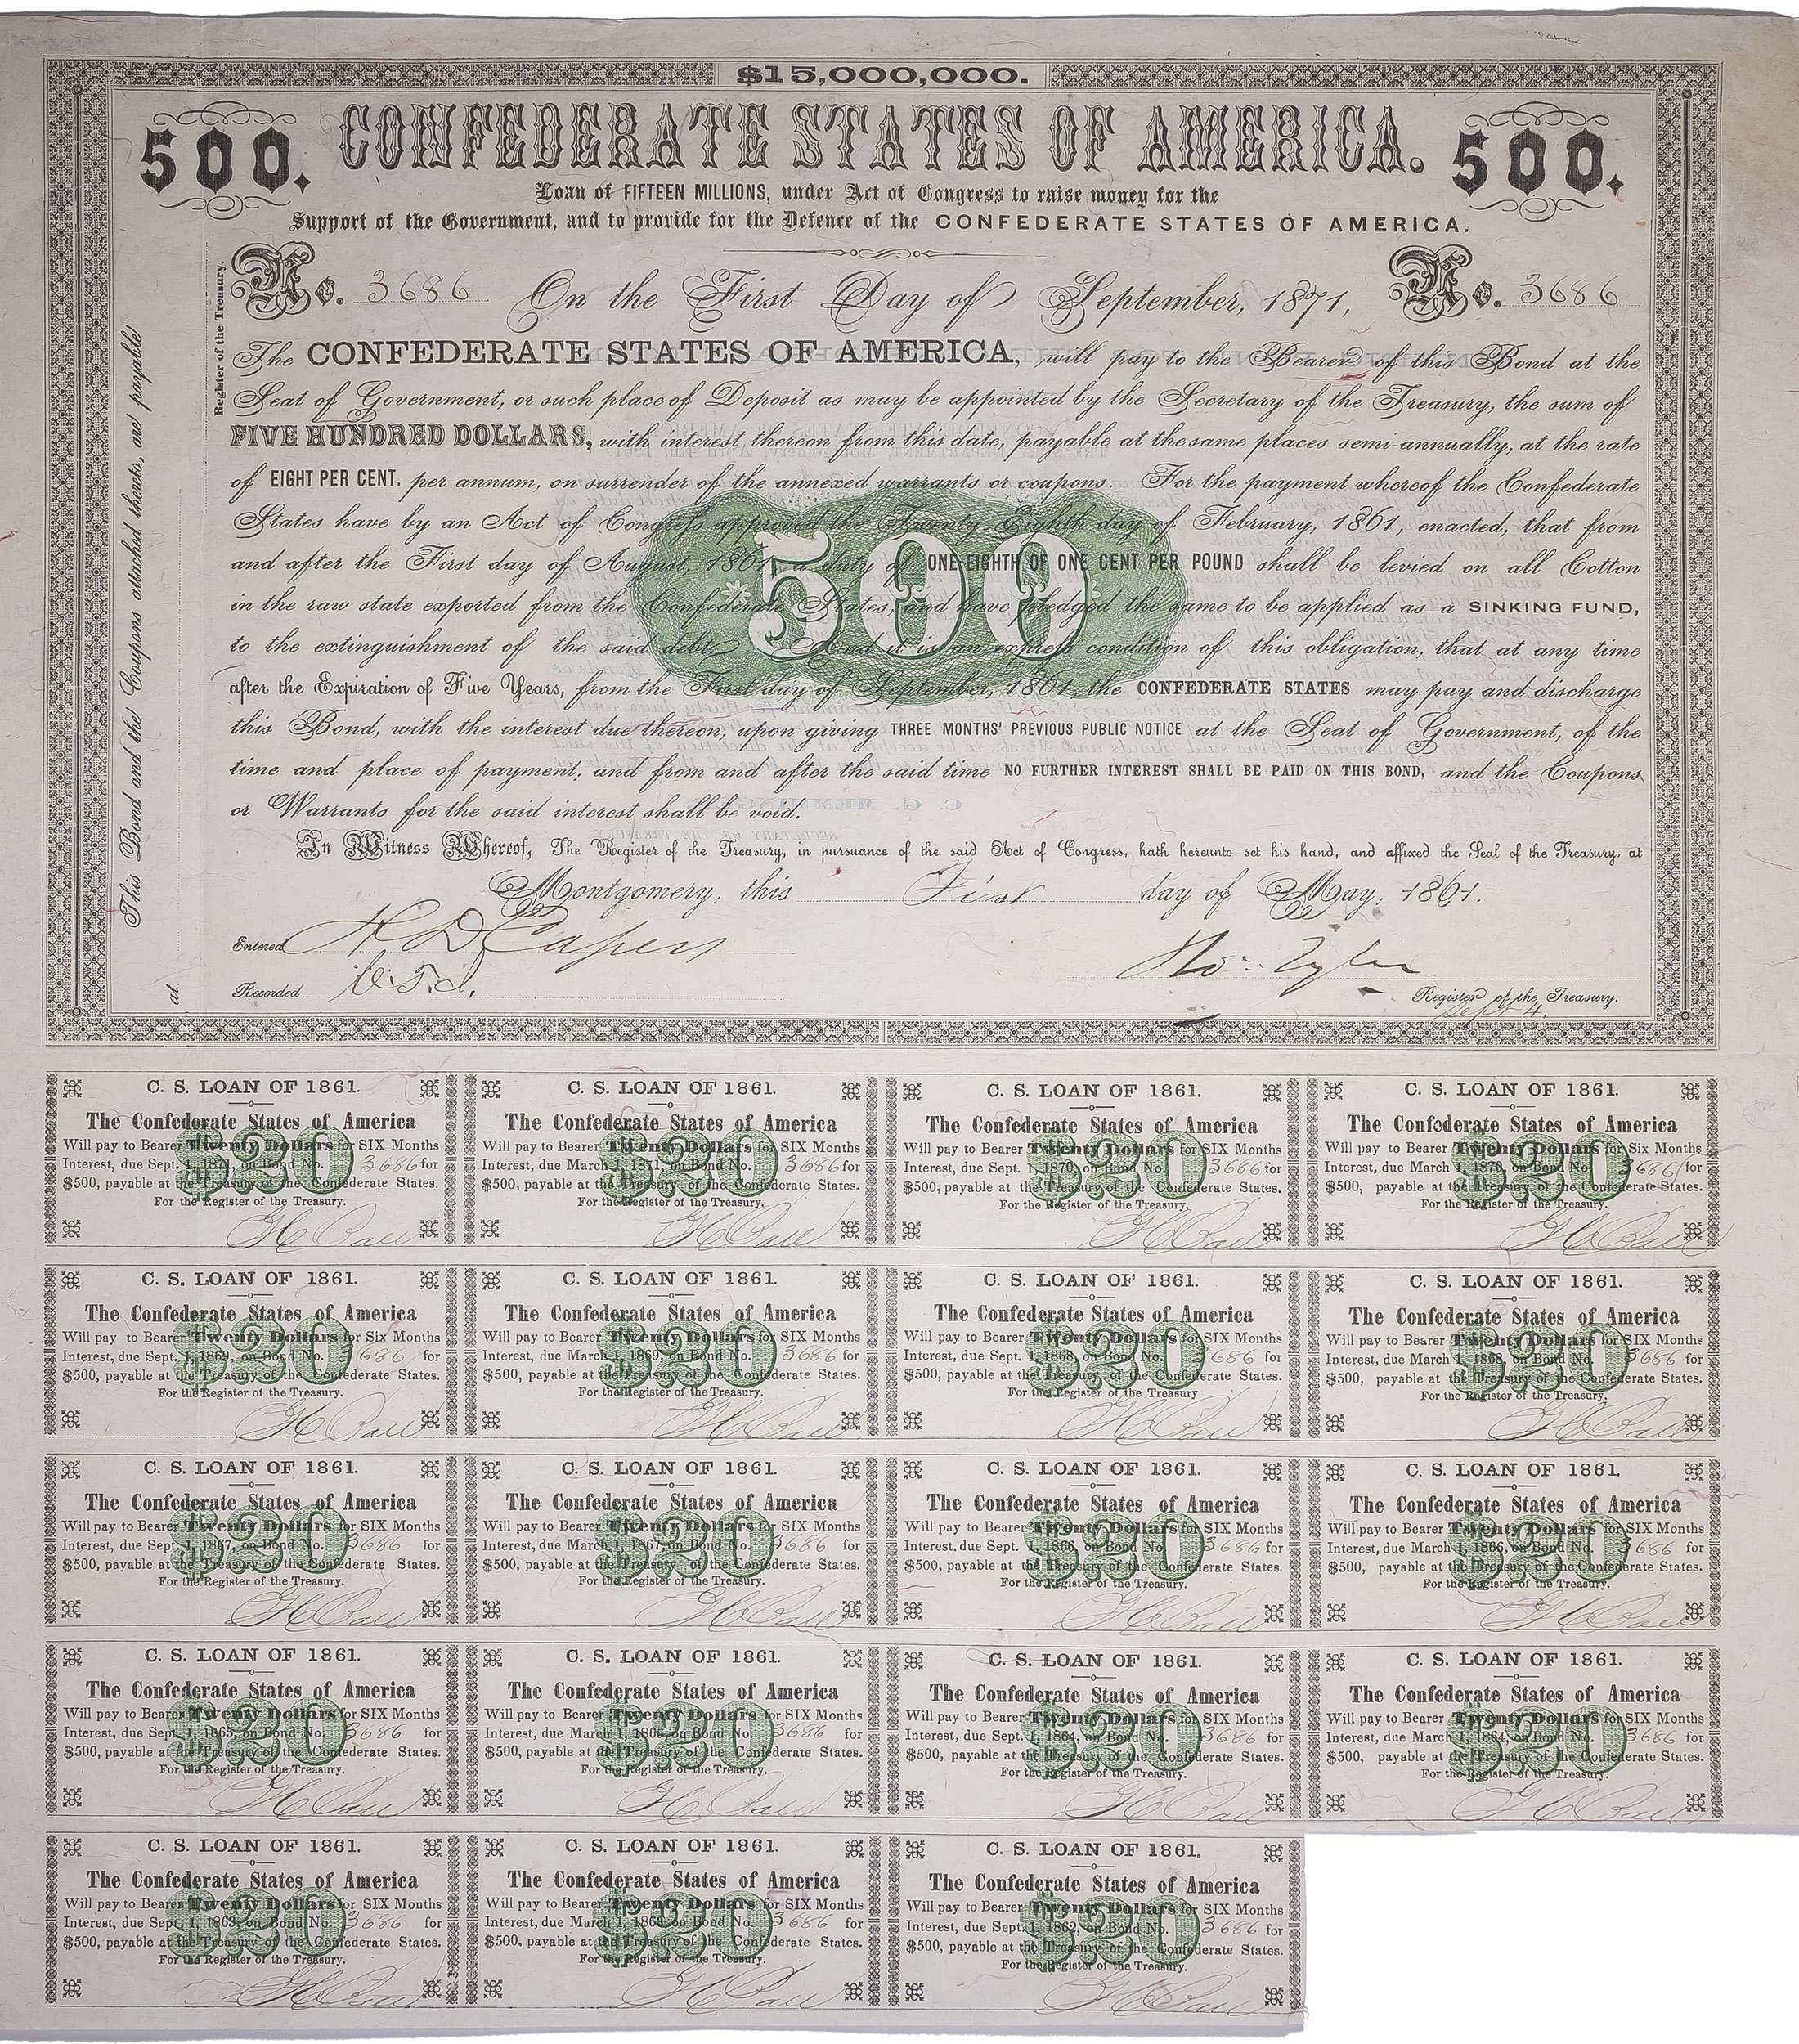 $15,000,000.
500. CONFEDERATE STATES OF AMERICA. 500.
Loan of FIFTEEN MILLIONS, under Act of Congress to raise money for the
Support of the Government, and to provide for the Defence of the CONFEDERATE STATES OF AMERICA.
No. 3686 On the First Day of September, 1871, No. 3686
The CONFEDERATE STATES OF AMERICA, will pay to the Bearer of this Bond at the
Seat of Government, or such place of Deposit as may be appointed by the Secretary of the Treasury, the sum of
FIVE HUNDRED DOLLARS, with interest thereon from this date, payable at the same places semi-annually, at the rate
of EIGHT PER CENT. per annum, on surrender of the annexed warrants or coupons. For the payment whereof the Confederate
States have by an Act of Congress approved the Twenty Eighth day of February, 1861, enacted, that from
and after the First day of August, 1861, a duty of ONE-EIGHTH OF ONE CENT PER POUND shall be levied on all Cotton
in the raw state exported from the Confederate States, and have pledged the same to be applied as a SINKING FUND,
to the extinguishment of the said debt. And it is an express condition of this obligation, that at any time
after the Expiration of Five Years, from the First day of September, 1861, the CONFEDERATE STATES may pay and discharge
this Bond, with the interest due thereon, upon giving THREE MONTHS' PREVIOUS PUBLIC NOTICE at the Seat of Government, of the
time and place of payment, and from and after the said time NO FURTHER INTEREST SHALL BE PAID ON THIS BOND, and the Coupons
or Warrants for the said interest shall be void.
500
In Witness Whereof, The Register of the Treasury, in pursuance of the said Act of Congress, hath hereunto set his hand, and affixed the Seal of the Treasury, at
Montgomery, this First day of May, 1861.
Entered H D Capers
Recorded
Ro: Tyler
Register of the Treasury.
Sept 4.
This Bond and the Coupons attached thereto, are payable
at
Register of the Treasury.
C. S. LOAN OF 1861.
The Confederate States of America
Will pay to Bearer Twenty Dollars for SIX Months
Interest, due Sept. 1, 1871, on Bond No. 3686 for
$500, payable at the Treasury of the Confederate States.
For the Register of the Treasury.
$20
C. S. LOAN OF 1861.
The Confederate States of America
Will pay to Bearer Twenty Dollars for SIX Months
Interest, due March 1, 1871, on Bond No. 3686 for
$500, payable at the Treasury of the Confederate States.
For the Register of the Treasury.
$20
C. S. LOAN OF 1861.
The Confederate States of America
Will pay to Bearer Twenty Dollars for SIX Months
Interest, due Sept. 1, 1870, on Bond No. 3686 for
$500, payable at the Treasury of the Confederate States.
For the Register of the Treasury,
$20
C. S. LOAN OF 1861.
The Confederate States of America
Will pay to Bearer Twenty Dollars for Six Months
Interest, due March 1, 1870, on Bond No. 3686 for
$500, payable at the Treasury of the Confederate States.
For the Register of the Treasury.
$20
C. S. LOAN OF 1861.
The Confederate States of America
Will pay to Bearer Twenty Dollars for Six Months
Interest, due Sept. 1, 1869, on Bond No. 3686 for
$500, payable at the Treasury of the Confederate States.
For the Register of the Treasury.
$20
C. S. LOAN OF 1861.
The Confederate States of America
Will pay to Bearer Twenty Dollars for SIX Months
Interest, due March 1, 1869, on Bond No. 3686 for
$500, payable at the Treasury of the Confederate States.
For the Register of the Treasury.
$20
C. S. LOAN OF 1861.
The Confederate States of America
Will pay to Bearer Twenty Dollars for SIX Months
Interest, due Sept. 1, 1868, on Bond No. 3686 for
$500, payable at the Treasury of the Confederate States.
For the Register of the Treasury
$20
C. S. LOAN OF 1861.
The Confederate States of America
Will pay to Bearer Twenty Dollars for SIX Months
Interest, due March 1, 1868, on Bond No. 3686 for
$500, payable at the Treasury of the Confederate States.
For the Register of the Treasury.
$20
C. S. LOAN OF 1861.
The Confederate States of America
Will pay to Bearer Twenty Dollars for SIX Months
Interest, due Sept. 1, 1867, on Bond No. 3686 for
$500, payable at the Treasury of the Confederate States.
For the Register of the Treasury.
$20
C. S. LOAN OF 1861.
The Confederate States of America
Will pay to Bearer Twenty Dollars for SIX Months
Interest, due March 1, 1867, on Bond No. 3686 for
$500, payable at the Treasury of the Confederate States.
For the Register of the Treasury.
$20
C. S. LOAN OF 1861.
The Confederate States of America
Will pay to Bearer Twenty Dollars for SIX Months
Interest, due Sept. 1, 1866, on Bond No. 3686 for
$500, payable at the Treasury of the Confederate States.
For the Register of the Treasury.
$20
C. S. LOAN OF 1861.
The Confederate States of America
Will pay to Bearer Twenty Dollars for SIX Months
Interest, due March 1, 1866, on Bond No. 3686 for
$500, payable at the Treasury of the Confederate States.
For the Register of the Treasury.
$20
C. S. LOAN OF 1861.
The Confederate States of America
Will pay to Bearer Twenty Dollars for SIX Months
Interest, due Sept. 1, 1865, on Bond No. 3686 for
$500, payable at the Treasury of the Confederate States.
For the Register of the Treasury.
$20
C. S. LOAN OF 1861.
The Confederate States of America
Will pay to Bearer Twenty Dollars for SIX Months
Interest, due March 1, 1865, on Bond No. 3686 for
$500, payable at the Treasury of the Confederate States.
For the Register of the Treasury.
$20
C. S. LOAN OF 1861.
The Confederate States of America
Will pay to Bearer Twenty Dollars for SIX Months
Interest, due Sept. 1, 1864, on Bond No. 3686 for
$500, payable at the Treasury of the Confederate States.
For the Register of the Treasury.
$20
C. S. LOAN OF 1861.
The Confederate States of America
Will pay to Bearer Twenty Dollars for SIX Months
Interest, due March 1, 1864, on Bond No. 3686 for
$500, payable at the Treasury of the Confederate States.
For the Register of the Treasury.
$20
C. S. LOAN OF 1861.
The Confederate States of America
Will pay to Bearer Twenty Dollars for SIX Months
Interest, due Sept. 1, 1863, on Bond No. 3686 for
$500, payable at the Treasury of the Confederate States.
For the Register of the Treasury.
$20
C. S. LOAN OF 1861.
The Confederate States of America
Will pay to Bearer Twenty Dollars for SIX Months
Interest, due March 1, 1863, on Bond No. 3686 for
$500, payable at the Treasury of the Confederate States.
For the Register of the Treasury.
$20
C. S. LOAN OF 1861.
The Confederate States of America
Will pay to Bearer Twenty Dollars for SIX Months
Interest, due Sept. 1, 1862, on Bond No. 3686 for
$500, payable at the Treasury of the Confederate States.
For the Register of the Treasury.
$20